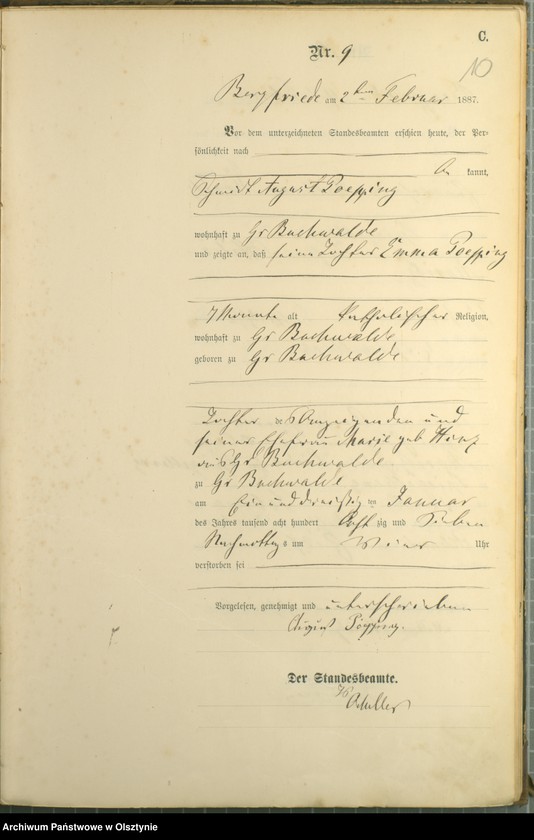 C.
Nr. 9
10
Bergfriede am 2ten Februar 1887.
Vor dem unterzeichneten Standesbeamten erschien heute, der Per-
sönlichkeit nach
kannt,
Schmidt August Poepping
wohnhaft zu Gr Buchwalde
und zeigte an, daß seine Tochter Emma Poepping
7 Monate alt katholischer Religion,
wohnhaft zu Gr Buchwalde
geboren zu Gr Buchwalde
Tochter des Anzeigenden und
seiner Ehefrau Marie geb
aus Gr Buchwalde
zu Gr Buchwalde
am Ein und dreißig ten Januar
des Jahres tausend acht hundert Acht zig und Sieben
Nachmittags um Uhr
verstorben sei
Vorgelesen, genehmigt und unterschrieben
August Pöpping.
Der Standesbeamte.
Archiwum Państwowe w Olsztynie